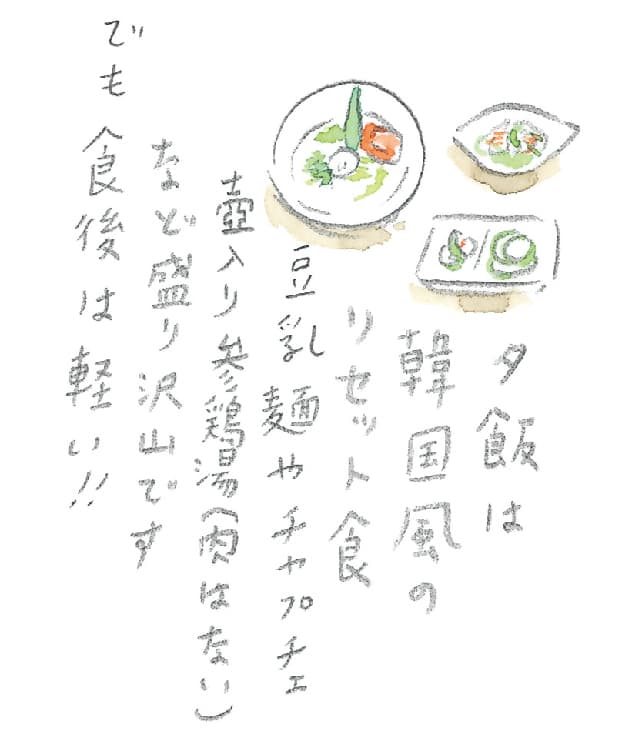 夕飯は
韓国風の
リセット食
豆乳麺やチャプチェ
壺入り参鶏湯(肉はない)
など盛り沢山です
でも食後は軽い!!